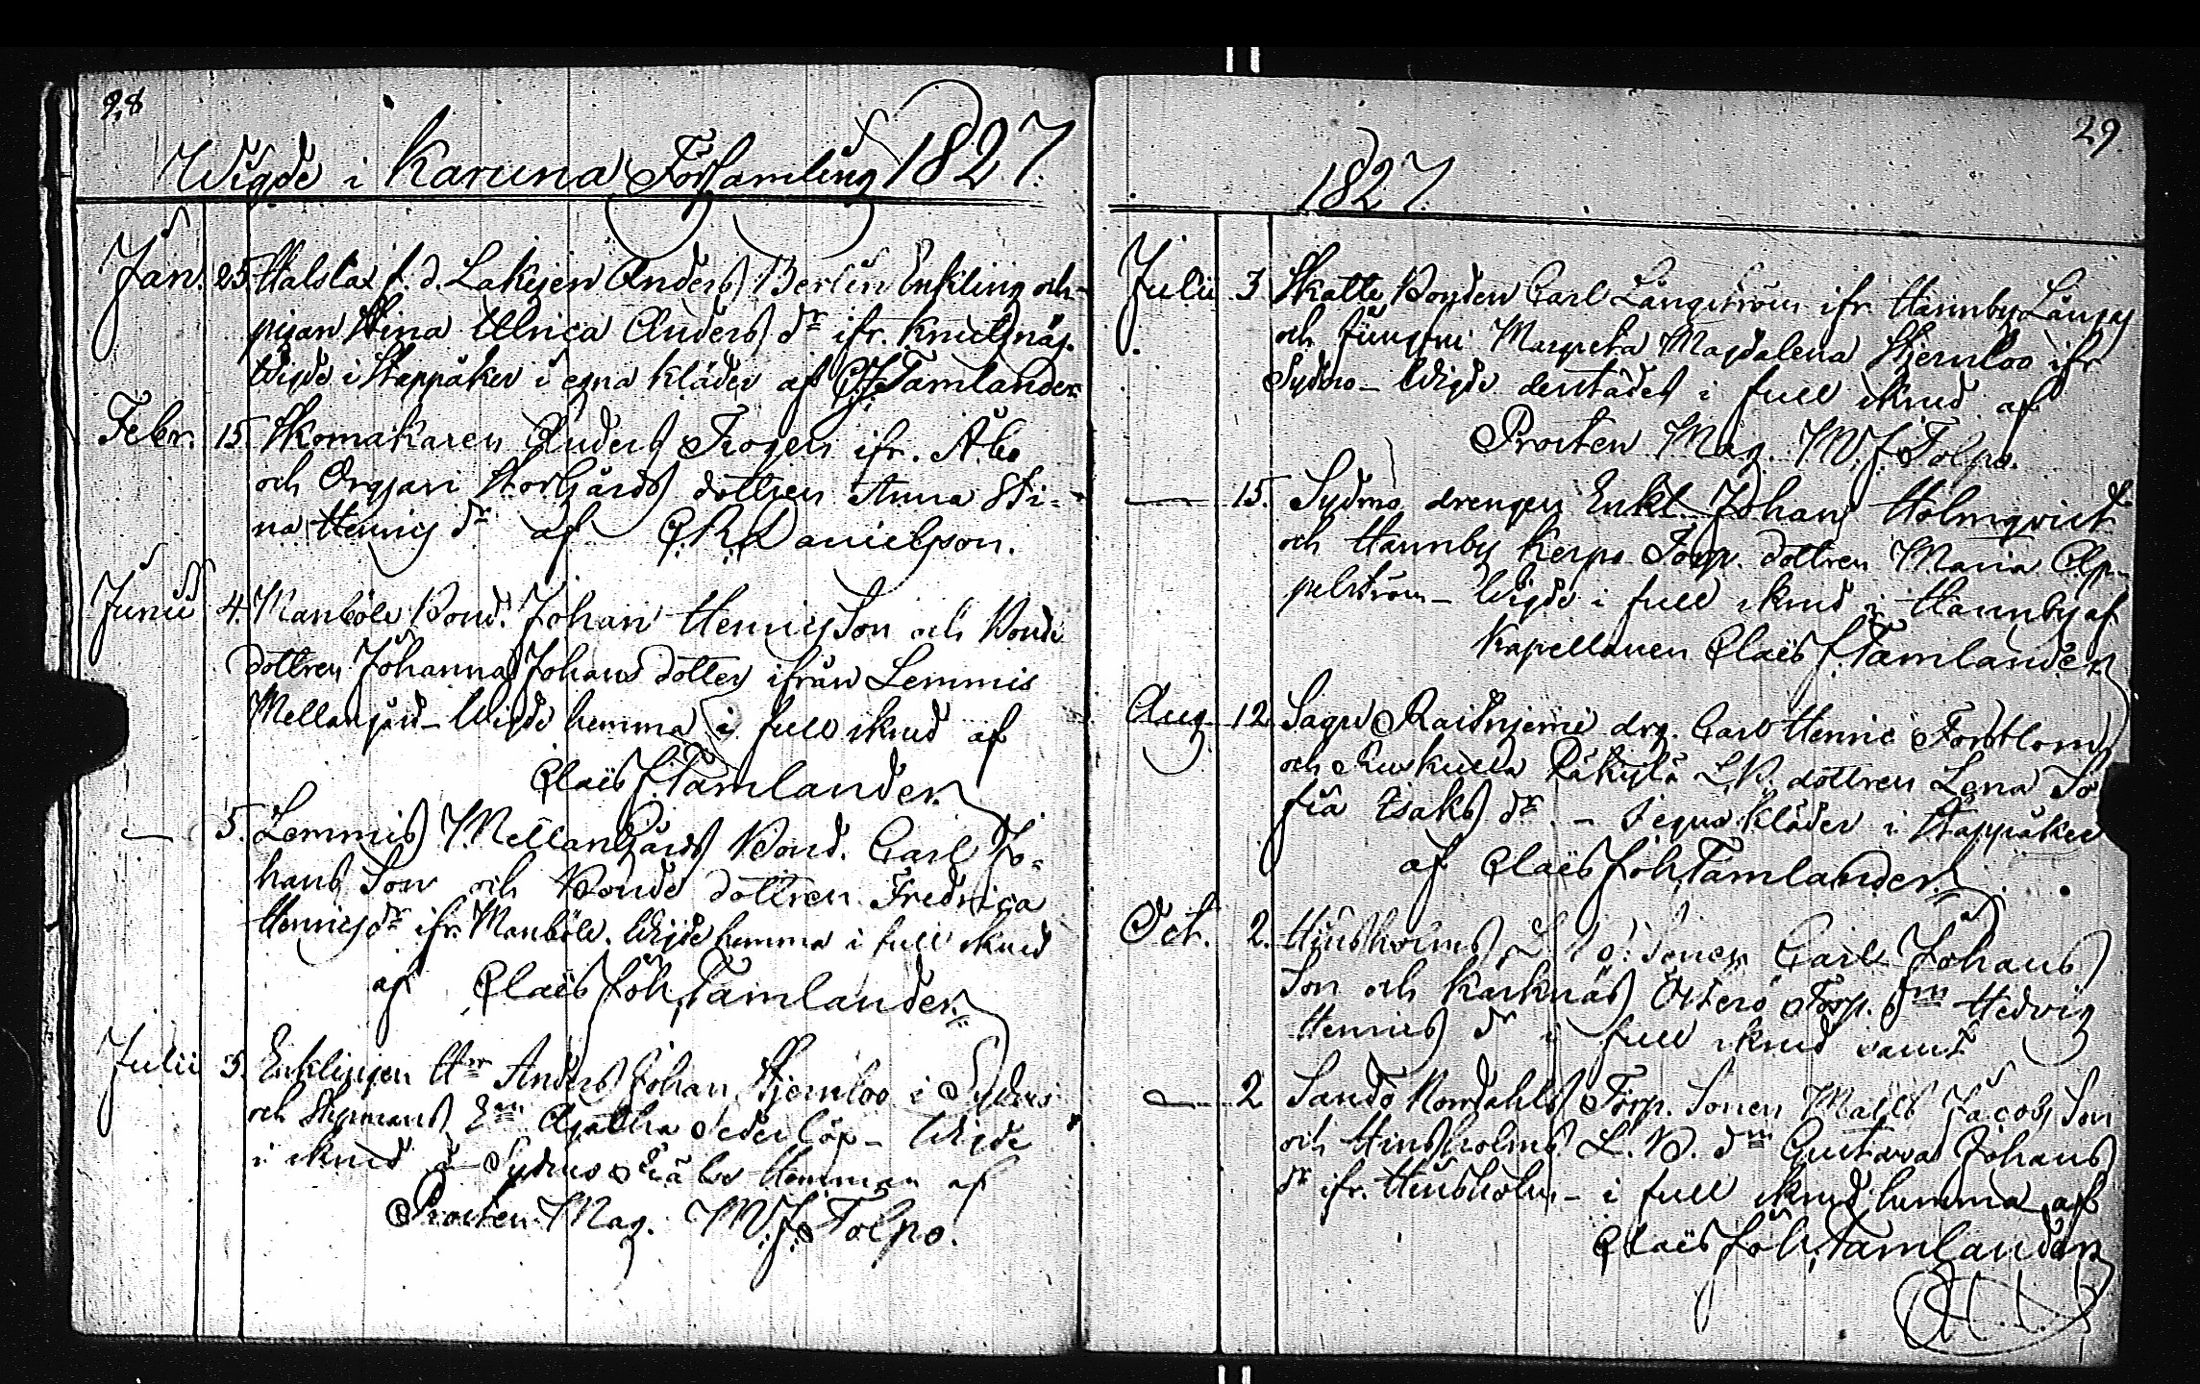 28
Wigde i Karuna Församling 1827.
Jan. 25. Halsta f. d. Lakejen Anders Berlin Enkling och
pigan Stina Ulrica Anders dr ifr. Knutsnäs.
Wigde i Stappåker i egna kläder af C. J. Tamlander
Febr. 15. Skomakaren Anders Frogen ifr. Åbo
och Orgjari Storgårds dottren Anna Sti-
na Henrics dr af C. R. Danielson.
Junii 4. Manböle Bond. Johan Henrics Son och Bonde
dottren Johanna Johans dotter ifrån Lemmis
Mellangård – Wigde hemma i full skrud af
Claës J. Tamlander.
— 5. Lemmis Mellangårds Bond. Carl Jo-
hans Son och Bonde dottren Fredrica
Henrics dr ifr. Manböle. Wigde hemma i full skrud
af Claës Joh. Tamlander.
Julii 3. Enklingen Hr Anders Johan Stjernloo i Sydmo
och En Agatha Cederlöf – Wigde
i skrud å Sydmo Hemman af
Prosten Mag. W. J. Tolpo.
29.
1827.
Julii 3 Skatte Bonden Carl Långström ifr. Hannby
och Jungfru Margreta Magdalena Stjernloo ifr
Sydmo – Wigde dertädes i full skrud af
Prosten Mag. W. J. Tolpo.
— 15. Sydmo drengen Enkl. Johan Holmqvist
och Hannby Kerpo Torp. dottren Maria Ap-
pelström – Wigde i full skrud i Hannby af
Kapellanen Claës J. Tamlander
Aug. 12 Sagu drg. Carl Henric Forsblom
och L. B. dottren Lena So
fia Isaks dr. – i egna kläder i Stappåker
af Claës Joh. Tamlander.
Oct. 2. Hinsholms L. B. Sonen Carl Johans
Son och Karknäs Österö Torp. dn Hedvig
Henrics dr i full skrud samt
— 2 Sandö Nordahls Torp. Sonen Matts Jacobs Son
och Hinsholms L. B. dn Gustava Johans
dr ifr. Hinsholm – i full skrud hemma af
Claës Joh. Tamlander